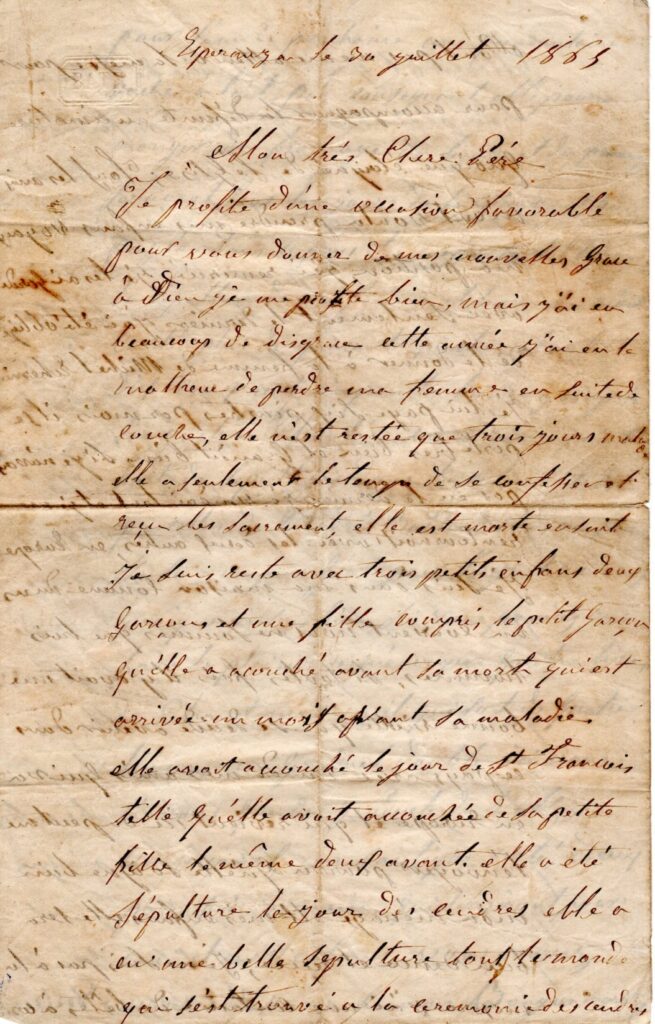 Esperanza le 30 juillet 1865
Mon très Chere Péré
Je profite d'une occasion favorable
pour vous donner de mes nouvelles Grace
à Dieu je me porte bien, mais j'ai eu
beaucoup de disgrace cette année j'ai eu le
malheur de perdre ma femme en suite de
couche, elle n'est restée que trois jours malade
elle a seulement le temps de se confesser et
reçu les sacrament, elle est morte ensuit
Je suis reste avec trois petits enfans deux
Garcons et une fille compris le petit Garçon
qu'elle a acouché avant sa mort qui est
arrivée un mois avant sa maladie
elle avait accouché le jour de St Francois
telle qu'elle avait accouchée de sa petite
fille le même deux avant. elle a été
sépulture le jour des cendres elle a
eu une belle sepulture tout le monde
qui s'est trouvé a la ceremonie des cendres